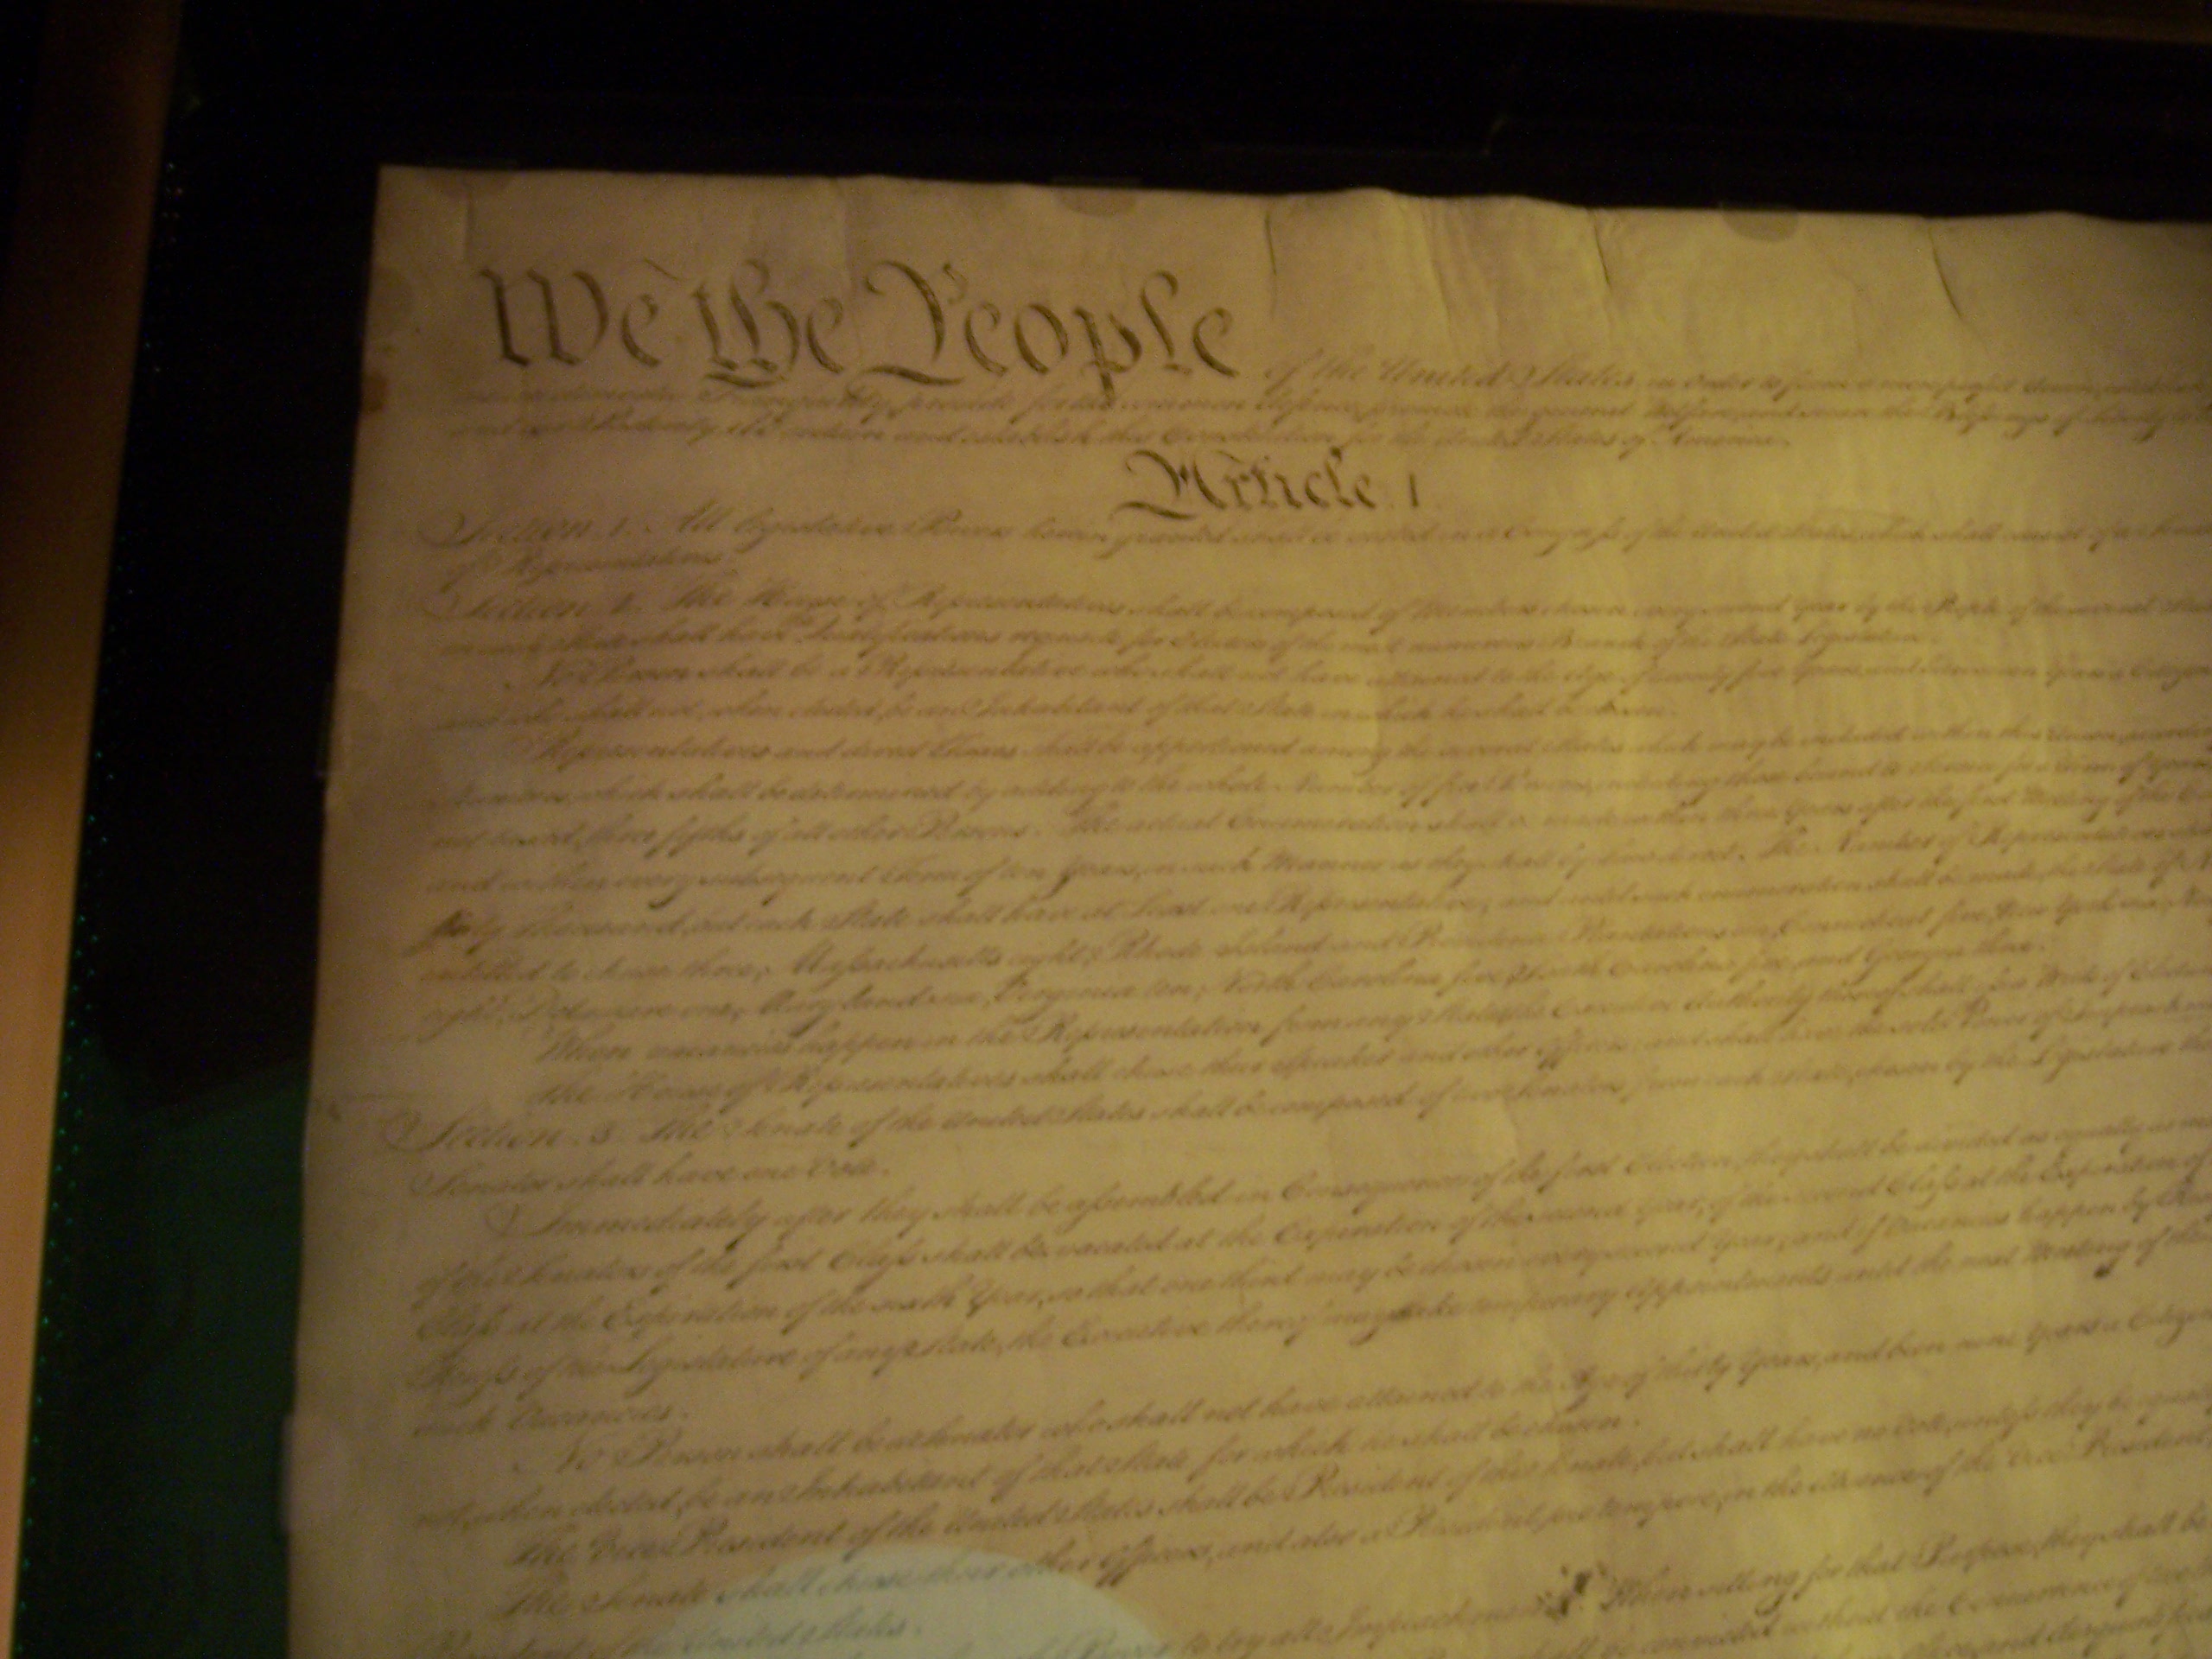 We the People of the United States, in Order to form a more perfect Union,
Tranquility, provide for the common defence, promote the general Welfare, and secure the Blessings of Liberty
and our Posterity, do ordain and establish this Constitution for the United States of America.
Article. I.
Section. 1. All legislative Powers herein granted shall be vested in a Congress of the United States, which shall consist of a
of Representatives.
Section. 2. The House of Representatives shall be composed of Members chosen every second Year by the People of the several States
in each State shall have Qualifications requisite for Electors of the most numerous Branch of the State Legislature.
No Person shall be a Representative who shall not have attained to the Age of twenty five Years, and been seven Years a Citizen
and who shall not, when elected, be an Inhabitant of that State in which he shall be chosen.
Representatives and direct Taxes shall be apportioned among the several States which may be included within this Union, according
Numbers, which shall be determined by adding to the whole Number of free Persons, including those bound to Service for a Term of Years
not taxed, three fifths of all other Persons. The actual Enumeration shall be made within three Years after the first Meeting of the
and within every subsequent Term of ten Years, in such Manner as they shall by Law direct. The Number of Representatives
thirty Thousand, but each State shall have at Least one Representative; and until such enumeration shall be made, the State of
entitled to chuse three, Massachusetts eight, Rhode Island and Providence Plantations one, Connecticut five, New York six,
eight, Delaware one, Maryland six, Virginia ten, North Carolina five, South Carolina five, and Georgia three.
When vacancies happen in the Representation from any State, the Executive Authority thereof shall issue Writs of Election
The House of Representatives shall chuse their Speaker and other Officers; and shall have the sole Power of Impeachment
Section. 3. The Senate of the United States shall be composed of two Senators from each State, chosen by the Legislature
Senator shall have one Vote.
Immediately after they shall be assembled in Consequence of the first Election, they shall be divided as equally as
of the Senators of the first Class shall be vacated at the Expiration of the second Year, of the second Class at the Expiration of
Class at the Expiration of the sixth Year, so that one third may be chosen every second Year; and if Vacancies happen by
Recess of the Legislature of any State, the Executive thereof may make temporary Appointments until the next Meeting of the
such Vacancies.
No Person shall be a Senator who shall not have attained to the Age of thirty Years, and been nine Years a Citizen
not, when elected, be an Inhabitant of that State for which he shall be chosen.
The Vice President of the United States shall be President of the Senate, but shall have no Vote, unless they be equally
The Senate shall chuse their other Officers, and also a President pro tempore, in the Absence of the Vice President,
President of the United States.
Power to try all Impeachments. When sitting for that Purpose, they shall be
shall be convicted without the Concurrence of two